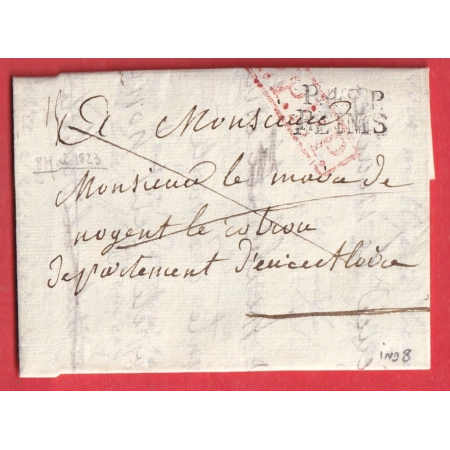 P.49.P
REIMS
A Monsieur
Monsieur le maire de
nogent le rotrou
departement d'eure et loire
ind 8